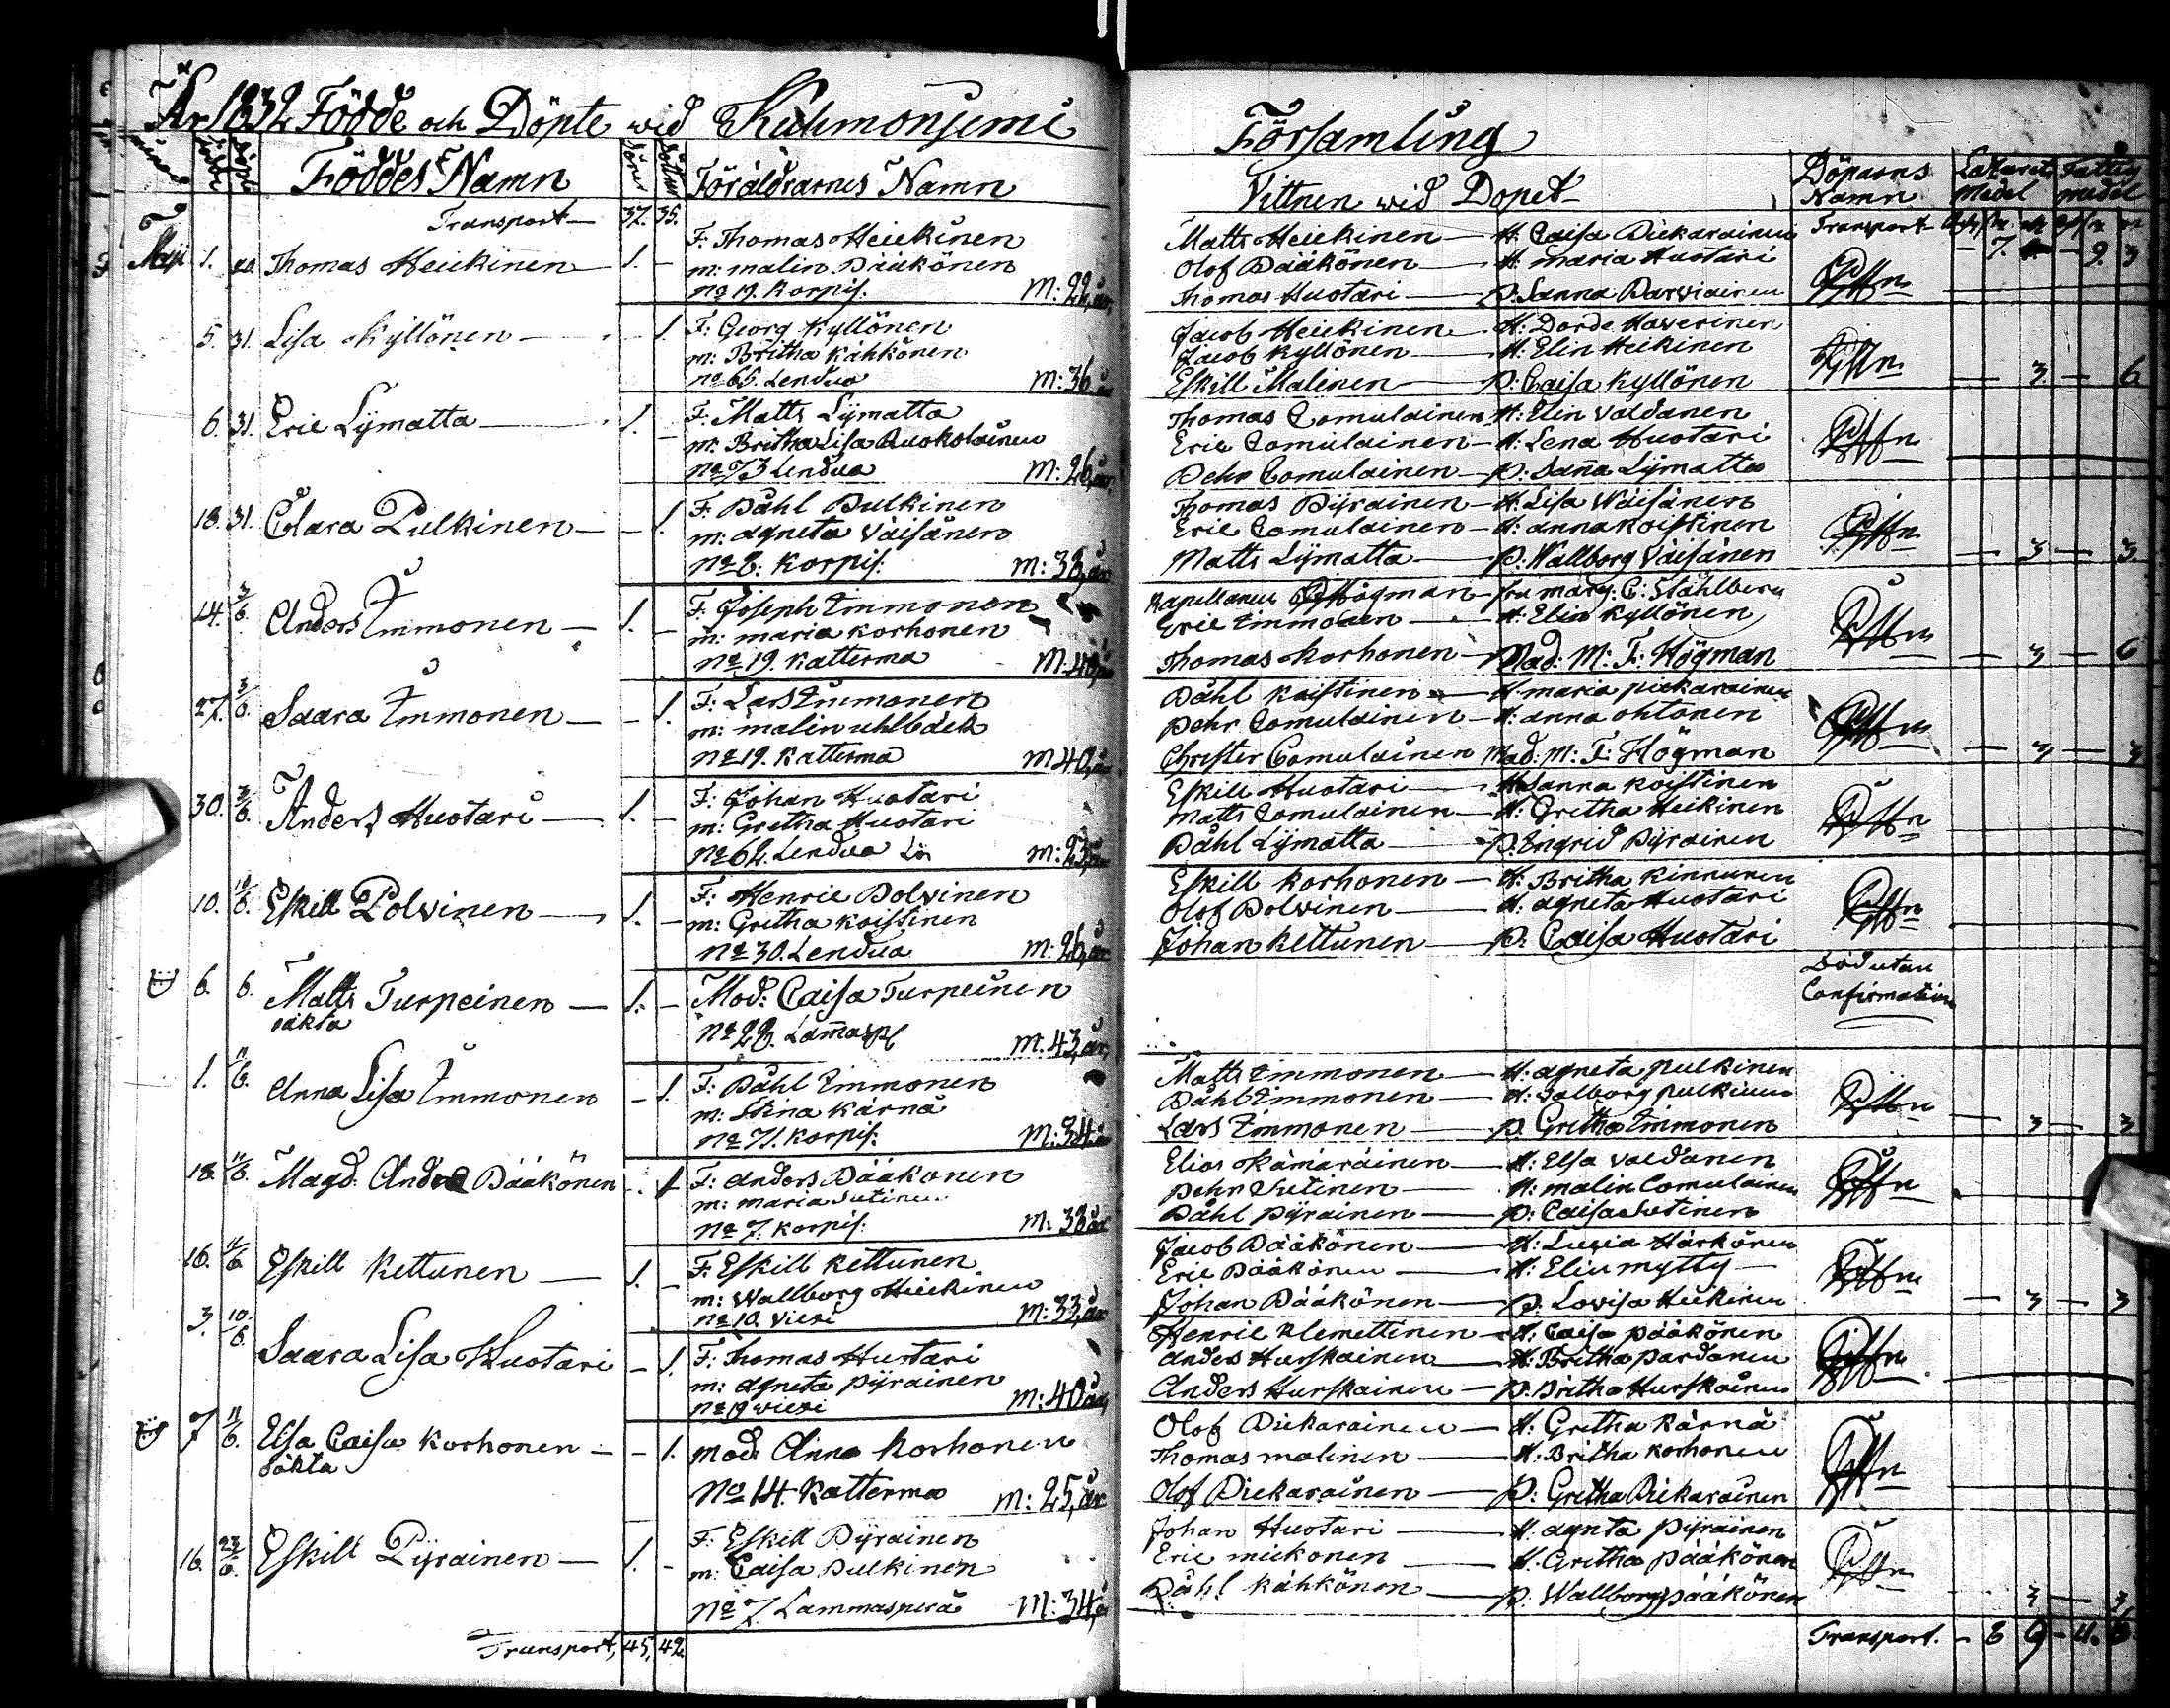 År 1832 Födde och Döpte wid Kuhmonjemi Församling
Födde Döpte Föddes Namn Söner Döttrar Föräldrarnes Namn Vittnen wid Dopet Döparns Namn Lazarets Medel Fattig medel
Transport 37. 35. Transport
Maji 1. 20. Thomas Heickinen 1. -
F: Thomas Heickinen
m: malin Pääkönen
No 19. Korpis: M: 22, år,
Matts Heickinen H: Caisa Pickarainen
Olof Pääkönen H: maria Huotari
Thomas Huotari p: Sanna Parviainen
- 7. - 9. 3
5. 31. Lisa Kyllönen - 1.
F: Georg Kyllönen
m: Britha Kähkönen
No 66. Lendua M: 36. år
Jacob Heickinen H: Dorde Haverinen
Jacob Kyllönen H: Elin Heikinen
Eskill Malinen p: Caisa Kyllönen
- 3 - 6.
6. 31. Eric Lÿmatta 1. -
F: Matts Lÿmatta
m: Britha Lisa Ruokolainen
No 73 Lendua M: 26, år,
Thomas Comulainen H: Elin Valdanen
Eric Comulainen H: Lena Huotari
Pehr Comulainen p: Sana Lÿmatta
18. 31. Clara Pulkinen - 1.
F: Påhl Pulkinen
m: agneta Väisänen
No 6. Korpis: M: 38, år
Thomas Pÿrainen H: Lisa Wäisänen
Eric Comulainen H: anna Koistinen
Matts Lÿmatta p: Wallborg Väisänen
- 3 - 3.
14. 3/6. Anders Immonen 1. -
F: Joseph Immonen
m: maria Korhonen
No 19. Katterma M: 40, år
Kapellanen Högman fru marg: C: Ståhlberg
Eric Immonen H: Elin Kyllönen
Thomas Korhonen Mad: M: F: Högman
- 3 - 6
27. 3/6. Saara Immonen - 1.
F: Lars Immonen
m: malin uhlbäck
No 19. Katterma M 40, år
Påhl Koistinen H: maria pickarainen
pehr Comulainen H: anna ohtonen
Christer Comulainen Mad: M: F: Högman
- 3 - 3
30. 3/6. Anders Huotari 1. -
F: Johan Huotari
m: Gretha Huotari
No 62. Lendua Lös m: 23, år
Eskill Huotari H: Sanna Koistinen
matts Comulainen H: Gretha Heikinen
Påhl Lÿmatta p: Ingrid Pÿrainen
10. 10/6. Eskill Polvinen 1. -
F: Henric Polvinen
m: Gretha Koistinen
No 30. Lendua M: 26, år
Eskill Korhonen H: Britha Kinnunen
Olof Polvinen H: agneta Huotari
Johan Kettunen p: Caisa Huotari
6. 6. Matts Turpeinen 1. -
oäkta
Mod: Caisa Turpeinen
No 28. Lamasp M: 43, år,
Död utan
Confirmation
1. 11/6. Anna Lisa Immonen - 1.
F: Påhl Immonen
m: Stina Kärnä
No 71. Korpis: M: 34. år
Matts Immonen H: agneta pulkinen
Påhl Immonen H: Valborg pulkinen
Lars Immonen p: Gretha Immonen
- 3 - 3
18. 11/6. Magd: Andra Pääkönen - 1
F: anders Pääkonen
m: maria Sutinen
No 7. Korpis: M: 38 år
Elias Kämäräinen H: Elsa Valdanen
pehr Sutinen H: malin Comulainen
Påhl pÿrainen p: Caisa Sutinen
16. 11/6 Eskill Kettunen 1. -
F: Eskill Kettunen
m: Wallborg Heickinen
No 10. Viexi M: 33, år
Jacob Pääkönen H: Lucia Härkönen
Eric Pääkönen H: Elin mytty
Johan Pääkönen p: Lovisa Heikinen
- 3 - 3
3. 10/6. Saara Lisa Huotari - 1.
F: Thomas Huotari
m: agneta pÿrainen
No 19 wiexi M: 40 år,
Henric Klemettinen H: Caisa pääkönen
anders Hurskainen H: Britha pardanen
Anders Hurskainen p: Britha Hurskainen
7 11/6. Elsa Caisa Korhonen - 1.
oäkta
mod: Anna Korhonen
No 14. Katterma m: 25, år
Olof Pickarainen H: Gretha Kärnä
Thomas malinen H: Britha Korhonen
Olof Pickarainen p: Gretha Pickarainen
16. 23/6. Eskill Pÿrainen 1. -
F: Eskill Pÿrainen
m: Caisa pulkinen
No 7. Lammasperä M: 34, år
Johan Huotari H: agneta pÿrainen
Eric mickonen H: Gretha pääkönen
Påhl Kähkönen p: Wallborg pääkönen
3 - 3
Transport, 45, 42 Transport. - 8 9 - 11. 6